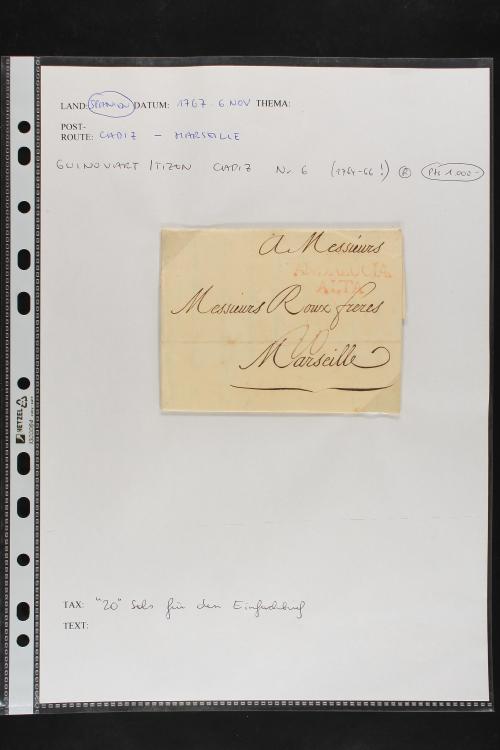 LAND: SPANIEN DATUM: 1767 6 NOV THEMA:
POST-
ROUTE: CADIZ – MARSEILLE
GUINOVART / TIZON CADIZ Nr 6 (1764-66!) R Pts 1.000-
A Messieurs
ANDALUCIA
ALTA
Messieurs Roux freres
20
Marseille
HETZEL
TAX: "20" Sols für den Einfachbrief
TEXT: